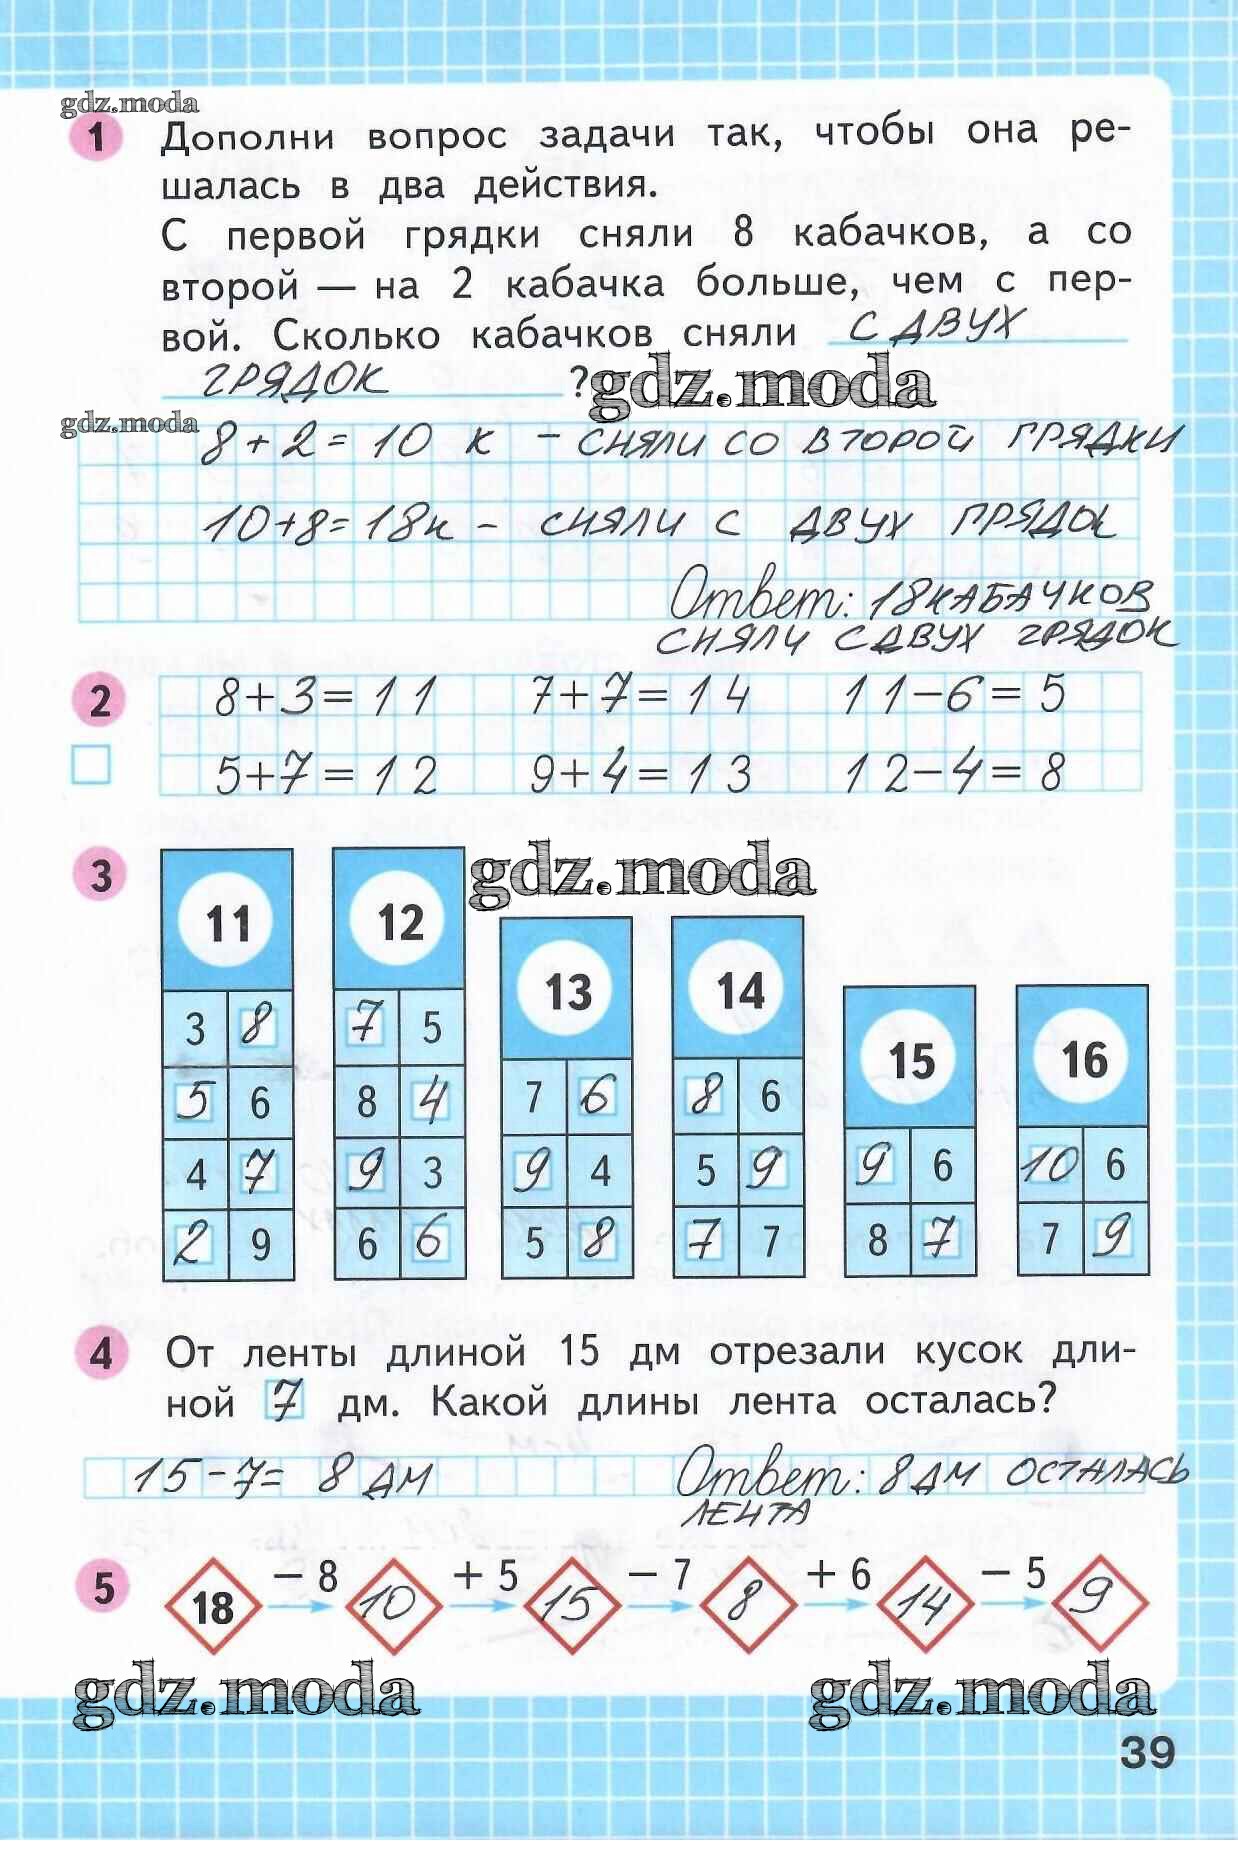 gdz.moda
1 Дополни вопрос задачи так, чтобы она ре-
шалась в два действия.
С первой грядки сняли 8 кабачков, а со
второй — на 2 кабачка больше, чем с пер-
вой. Сколько кабачков сняли С ДВУХ
ГРЯДОК ? gdz.moda
gdz.moda
8+2=10 К - СНЯЛИ СО ВТОРОЙ ГРЯДКИ
10+8=18к - СНЯЛИ С ДВУХ ГРЯДОК
Ответ: 18 КАБАЧКОВ
СНЯЛИ С ДВУХ ГРЯДОК
2 8+3=11 7+7=14 11-6=5
5+7=12 9+4=13 12-4=8
gdz.moda
3 11 12 13 14 15 16
3 8 7 5
5 6 8 4 7 6 8 6
4 7 9 3 9 4 5 9 9 6 10 6
2 9 6 6 5 8 7 7 8 7 7 9
4 От ленты длиной 15 дм отрезали кусок дли-
ной 7 дм. Какой длины лента осталась?
15-7= 8 ДМ Ответ: 8 ДМ ОСТАЛАСЬ
ЛЕНТА
5 18 - 8 10 + 5 15 - 7 8 + 6 14 - 5 9
gdz.moda gdz.moda
39